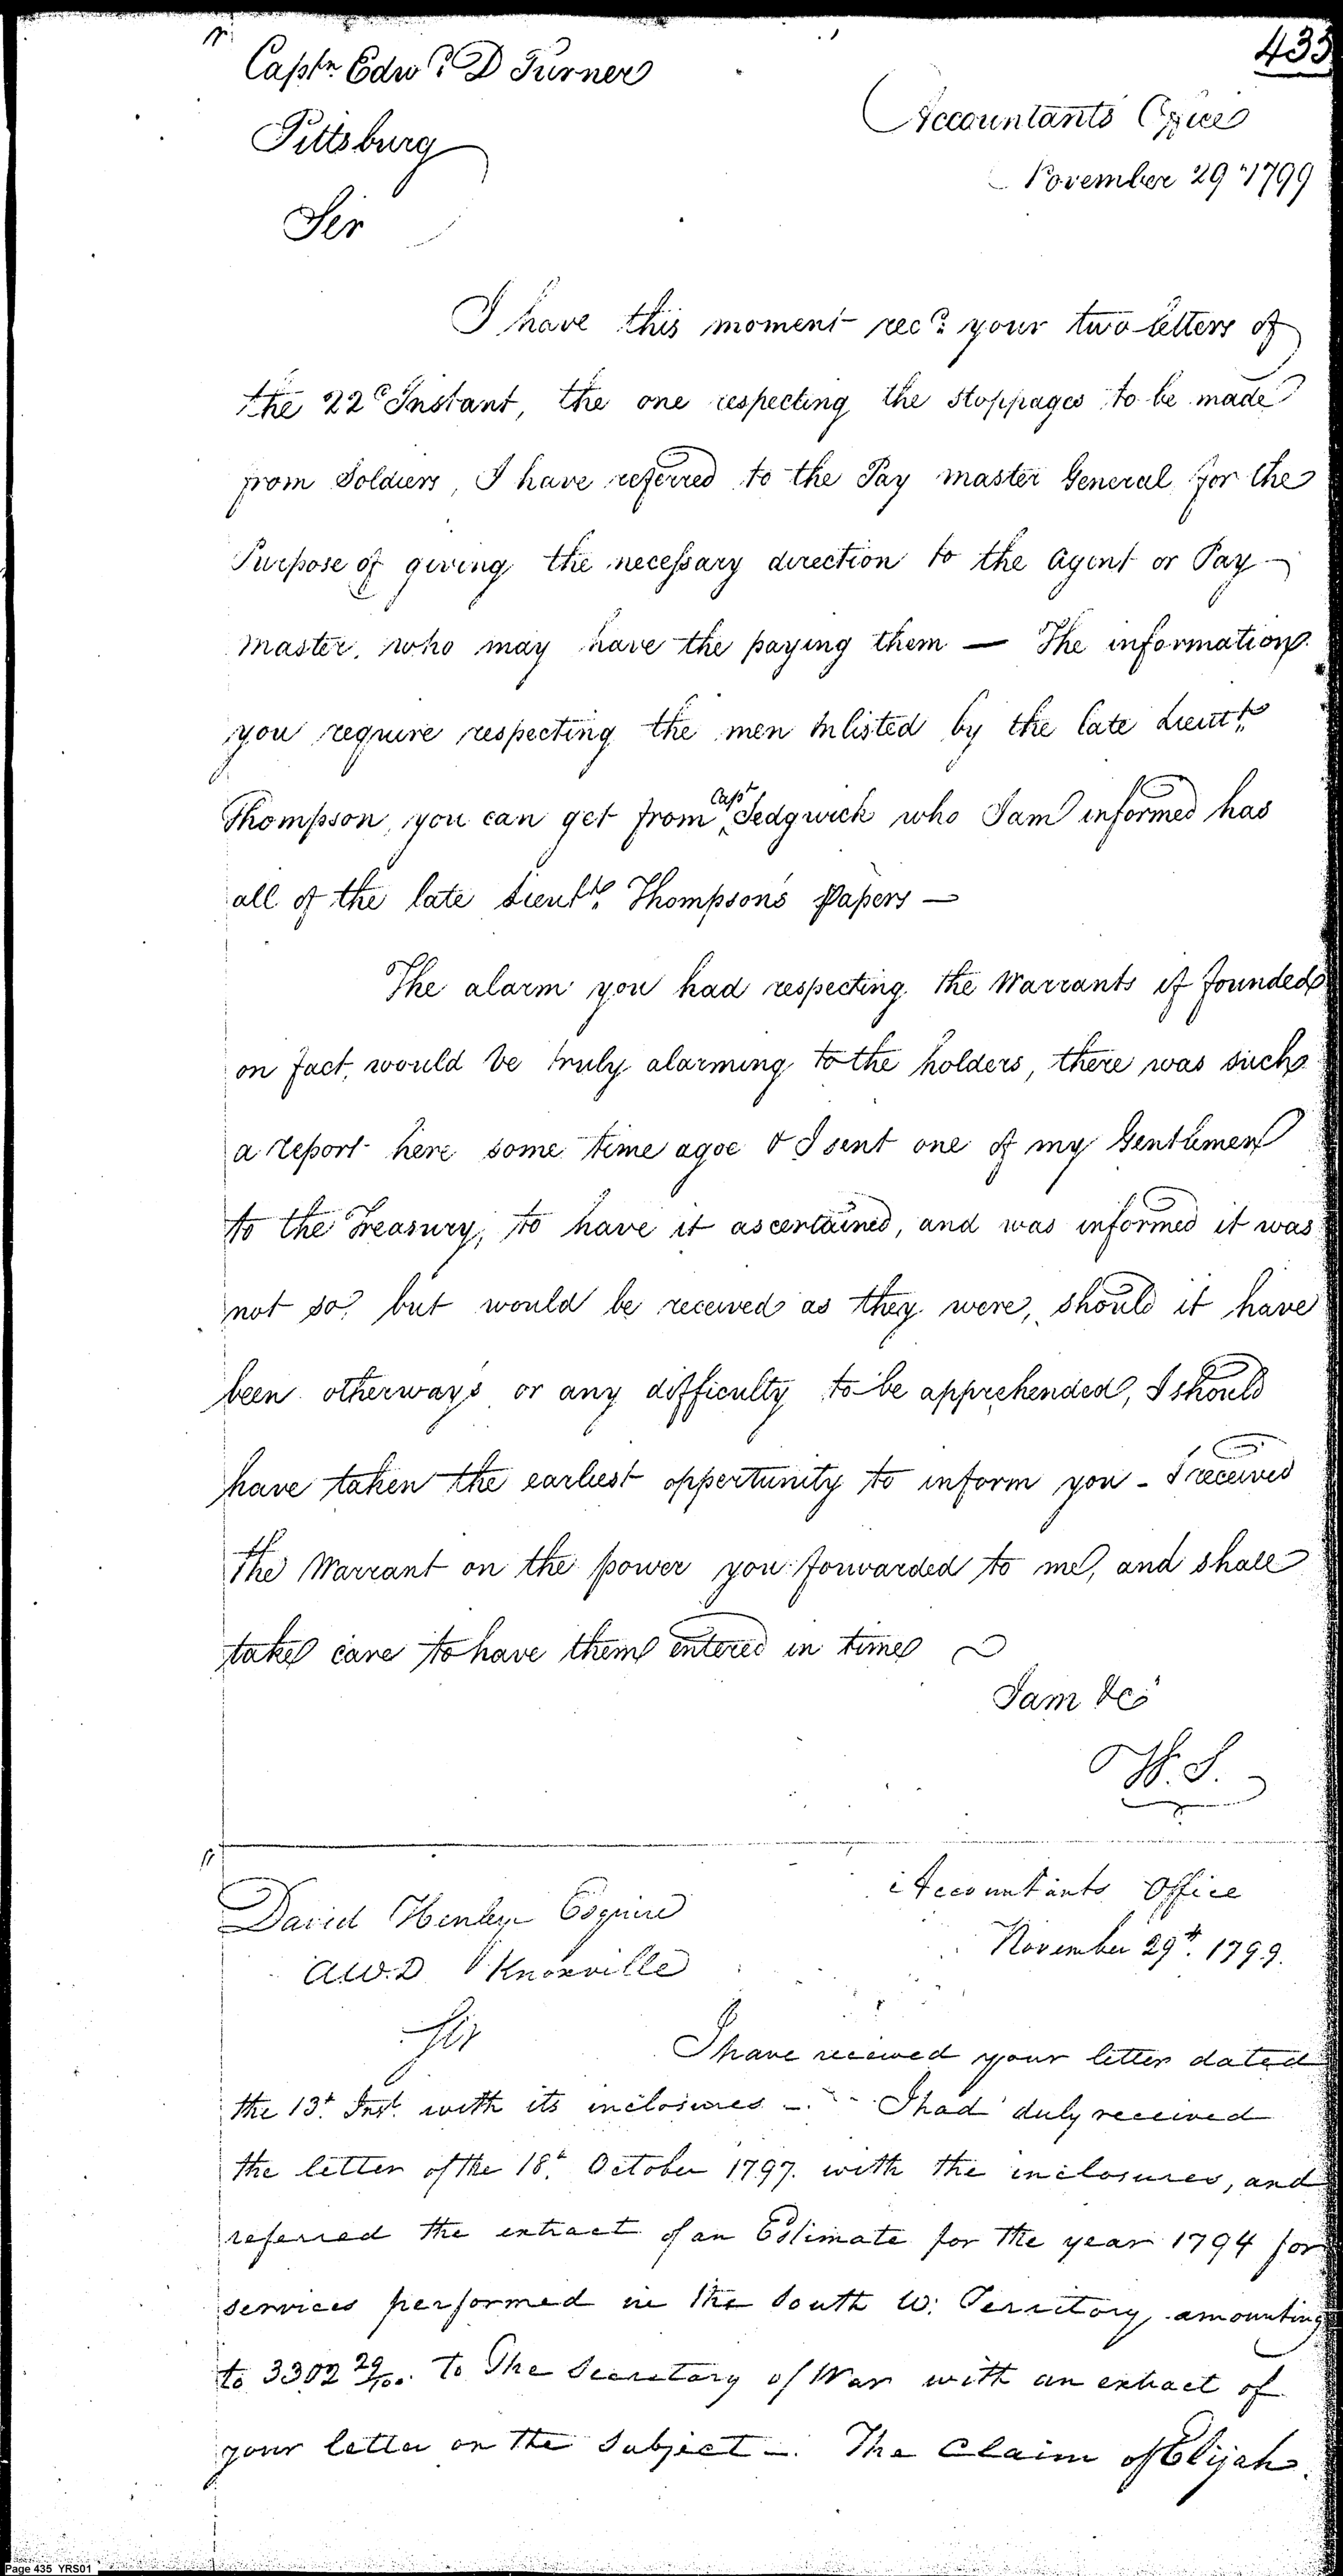 435
Captn. Edwd. D Turner
Pittsburg
Accountants Office
November 29th 1799
Sir
I have this moment recd. your two letters of
the 22d Instant, the one respecting the stoppages to be made
from Soldiers, I have referred to the Pay master General for the
Purpose of giving the necessary direction to the Agent or Pay-
master, who may have the paying them — The information
you require respecting the men Inlisted by the late Lieutt.
Thompson, you can get from Capt Sedgwick who I am informed has
all of the late Lieutt. Thompson's Papers —
The alarm you had respecting the Warrants if founded
on fact, would be truly alarming to the holders, there was such
a report here some time agoe & I sent one of my Gentlemen
to the Treasury, to have it ascertained, and was informed it was
not so but would be received as they were, should it have
been otherways or any difficulty to be apprehended, I should
have taken the earliest oppertunity to inform you - I received
the Warrant on the power you forwarded to me, and shall
take care to have them entered in time
I am &c
W. S.
David Henley Esquire
A.W.D Knoxville
Accountants Office
November 29th. 1799.
Sir
I have received your letter dated
the 13th. Inst. with its inclosures —. I had duly received
the letter of the 18th. October 1797. with the inclosures, and
referred the extract of an Estimate for the year 1794 for
services performed in the South W: Territory amounting
to 3302 29/100. to The Secretary of War with an extract of
your letter on the Subject —. The Claim of Elijah
Page 435 YRS01